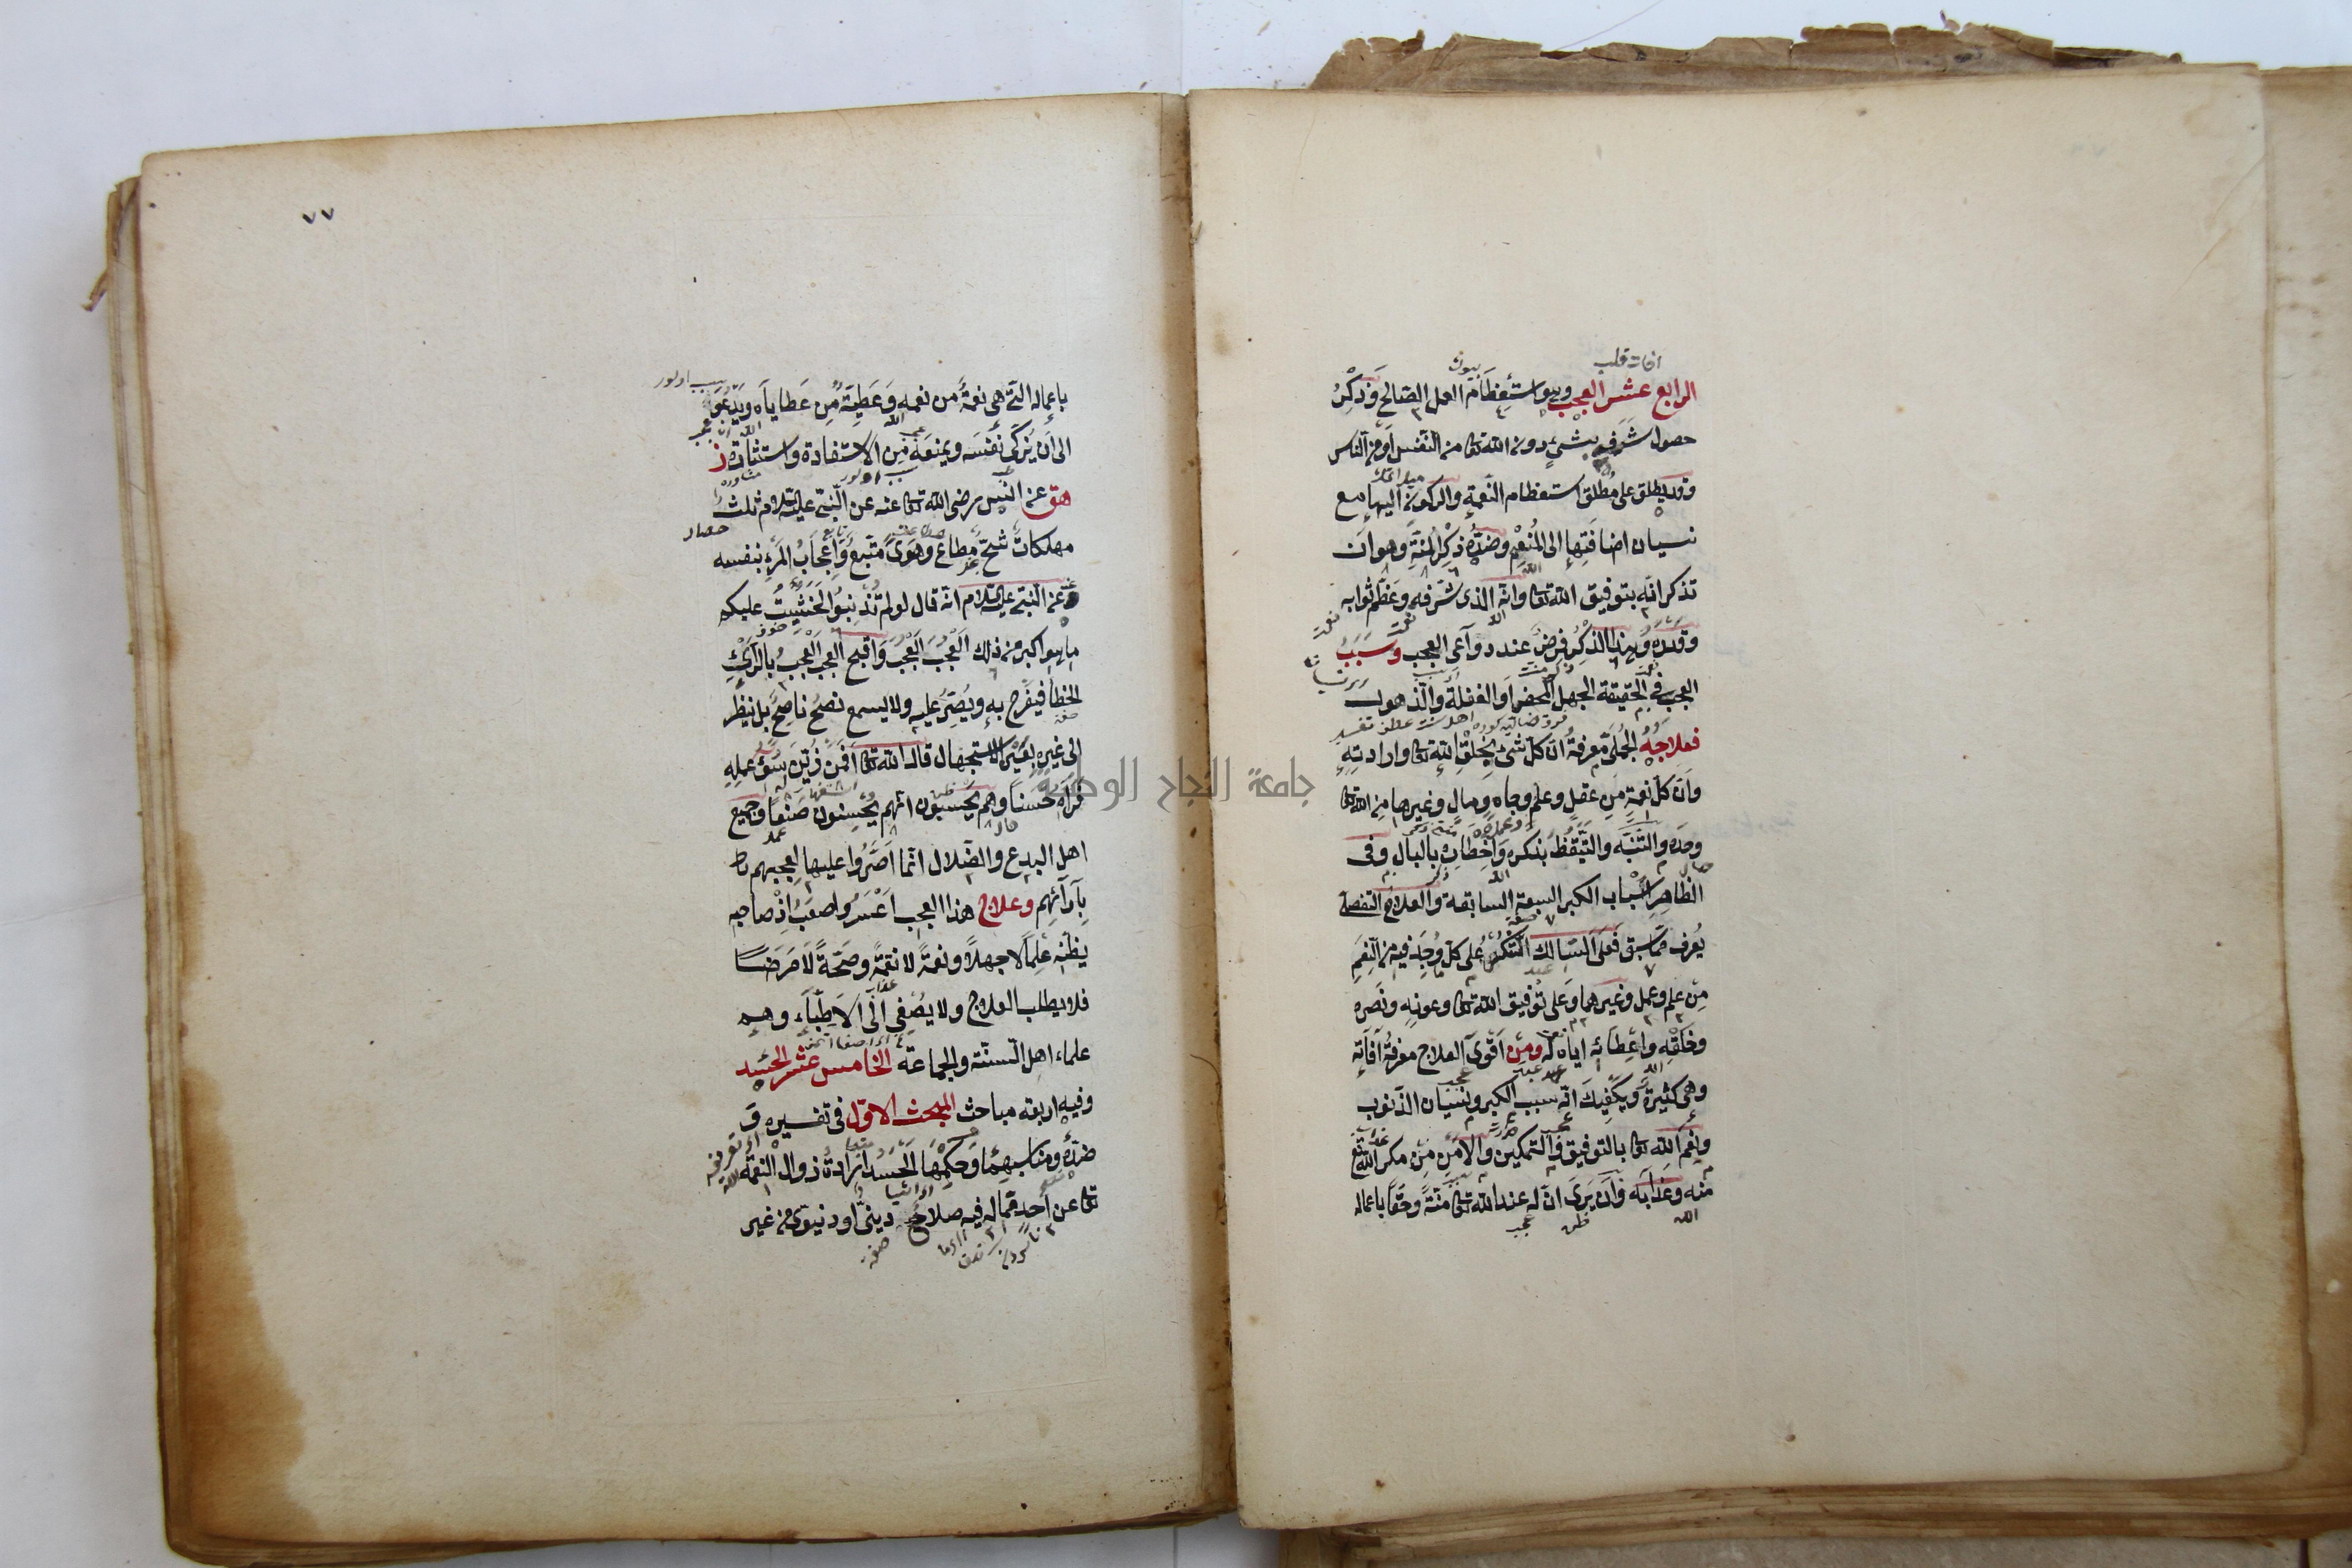 الرابع عشر العجب وهو استعظام العمل الصالح وذكر
حصول شرف بشيء دون الله تعا من النفس او من الناس
وقد يطلق على مطلق استعظام النعمة والركون اليها مع
نسيان اضافتها الى المنعم وضده ذكر المنة وهو ان
تذكر انه بتوفيق الله تعا وانه الذى شرفه وعظم ثوابه
وقدره وهذا الذكر فرض عند دواعى العجب وسبب
العجب في الحقيقة الجهل المحض او الغفلة والذهول
فعلاجه الجملى معرفة ان كل شئ بخلق الله تعا وارادته
وان كل نعمة من عقل وعلم وجاه ومال وغيرها من الله تعا
وحده والتنبه والتيقظ بذكره واخطاره بالبال وفى
الظاهر اسباب الكبر السبعة السابقة والعلاج التفصيلى
يعرف مما سبق فعلى السالك التشكر على كل ما وجد فيه من النعم
من علم وعمل وغيرهما وعلى توفيق الله تعا وعونه ونصره
وخلقه واعطائه اياه له ومن اقوى العلاج معرفة آفاته
وهى كثيرة ويكفيك انه سبب الكبر ونسيان الذنوب
ونعم الله تعا بالتوفيق والتمكين والامن من مكر الله تع
منه وعذابه وان يرى ان له عند الله تعا منة وحقا باعماله
٧٧
باعماله التى هى نعمة من نعمه وعطية من عطاياه ويدعو
الى ان يزكى نفسه ويمنعه من الاستفادة واستشارة ز
هق عن انس رضى الله تعا عنه عن النبى عليه السلام ثلث
مهلكات شح مطاع وهوى متبع واعجاب المرء بنفسه
عن النبى عليه السلام انه قال لو لم تذنبوا لخشيت عليكم
ما هو اكبر من ذلك العجب العجب واقبح العجب العجب بالرأى
الخطأ فيفرح به ويصر عليه ولا يسمع نصح ناصح بل ينظر
الى غيره بعين الاستجهال قال الله تعا افمن زين له سوء عمله
فرآه حسنا وهم يحسبون انهم يحسنون صنعا وجميع
اهل البدع والضلال انما اصروا عليها لعجبهم
بآرائهم وعلاج هذا العجب اعسر واصعب اذ صاحبه
يظنه علما لا جهلا ونعمة لا نقمة وصحة لا مرضا
فلا يطلب العلاج ولا يصغى الى الاطباء وهم
علماء اهل السنة والجماعة الخامس عشر الحسد
وفيه اربعة مباحث المبحث الاول فى تفسيره و
ضده ومناسبهما وحكمها الحسد ارادة زوال النعمة الله
تعا عن احد مما له فيه صلاح دينى او دنيوى من غير
جامعة النجاح الوطنية